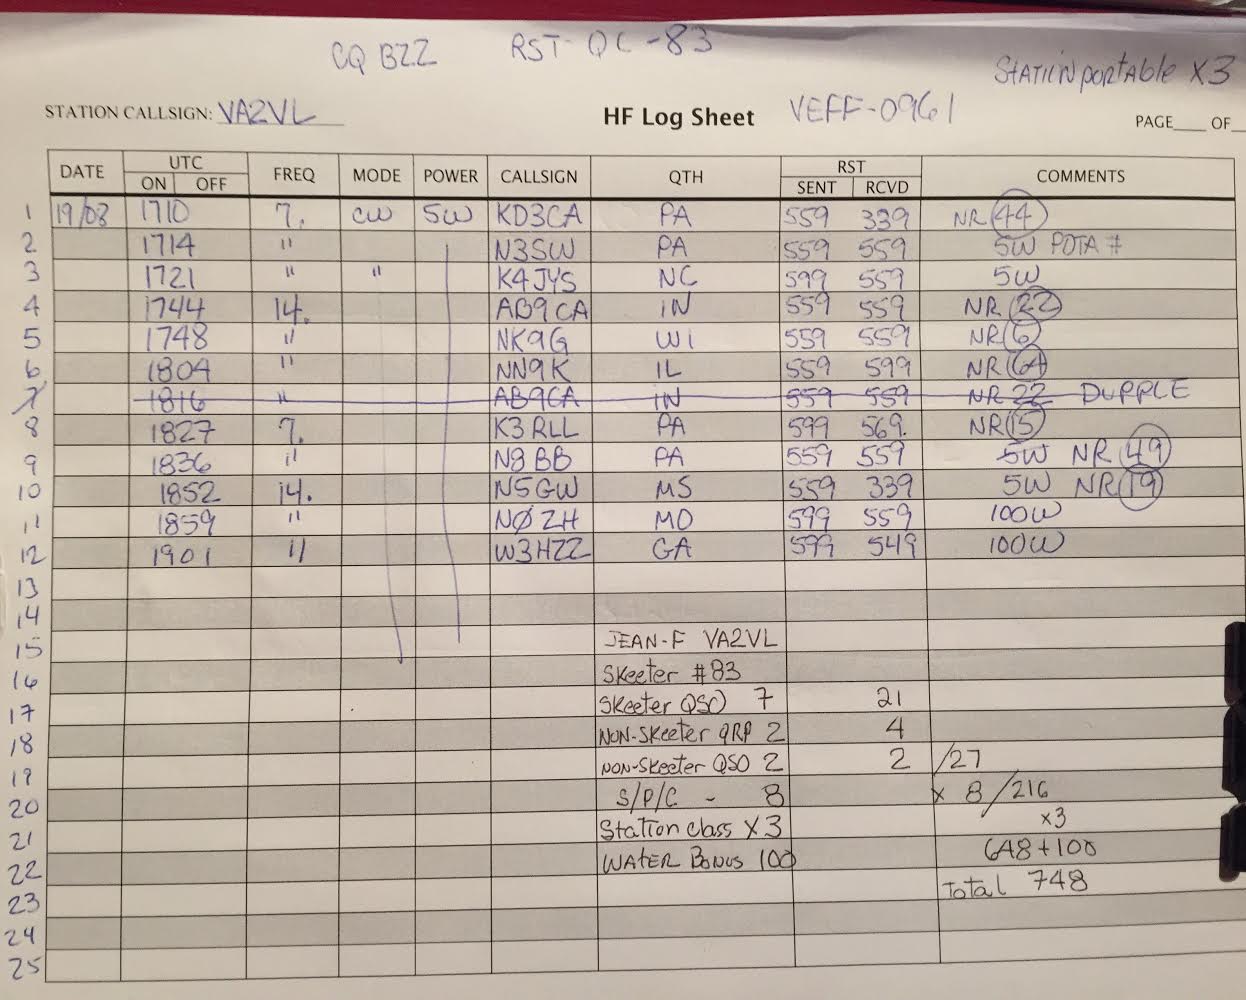 CQ BZZ RST-QC-83
STATION portable X3
STATION CALLSIGN: VA2VL HF Log Sheet VEFF-0961
PAGE___ OF_
DATE UTC FREQ MODE POWER CALLSIGN QTH RST COMMENTS
ON OFF SENT RCVD
1 19/08 1710 7. CW 5W KD3CA PA 559 339 NR 44
2 1714 " N3SW PA 559 559 5W POTA #
3 1721 " " K4JYS NC 599 559 5W
4 1744 14. AB9CA IN 559 559 NR 22
5 1748 " NK9G WI 559 559 NR 6
6 1804 " NN9K IL 559 599 NR 64
7 1816 " AB9CA IN 559 559 NR 22 DUPPLE
8 1827 7. K3RLL PA 599 569. NR 15
9 1836 " N8BB PA 559 559 5W NR 49
10 1852 14. N5GW MS 559 339 5W NR 19
11 1859 " NØZH MO 599 559 100W
12 1901 " W3HZZ GA 599 549 100W
13
14
15 JEAN-F VA2VL
16 Skeeter #83
17 Skeeter QSO 7 21
18 NON-Skeeter QRP 2 4
19 NON-Skeeter QSO 2 2 /27
20 S/P/C - 8 x 8 /216
21 Station class X3 x3
22 WATER BONUS 100 648+100
23 Total 748
24
25